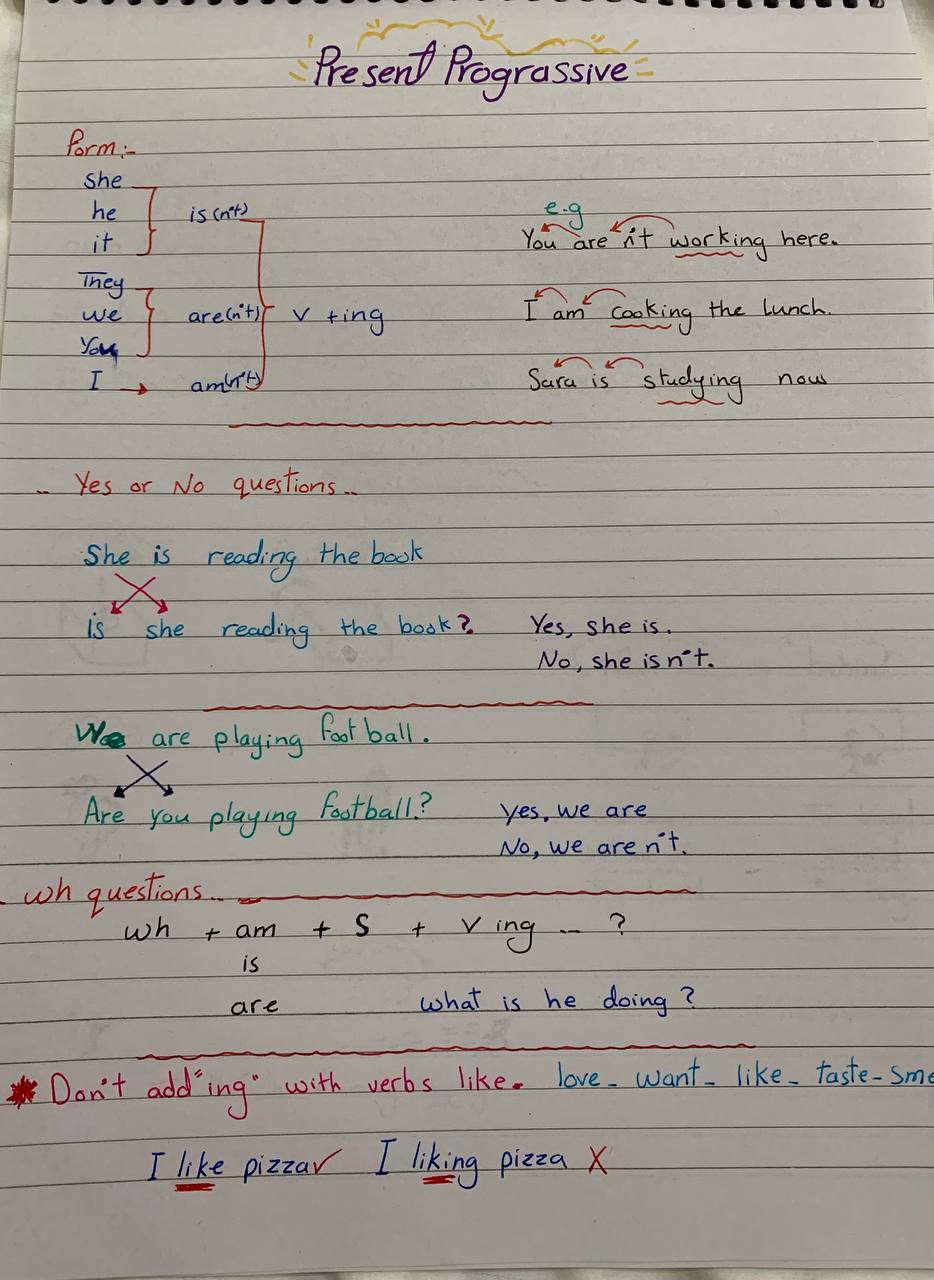 Present Prograssive
Form:-
She
he
it
is(n't)
They
we
You
are(n't)
I
am(n't)
V + ing
e.g
You are n't working here.
I am cooking the lunch.
Sara is studying now
.. Yes or No questions ..
She is reading the book
is she reading the book?
Yes, she is.
No, she isn't.
We are playing football.
Are you playing football?
Yes, we are
No, we aren't.
wh questions..
wh + am + S + V ing -- ?
is
are
what is he doing ?
* Don't add "ing" with verbs like. love - want - like - taste -
I like pizza ✓ I liking pizza X